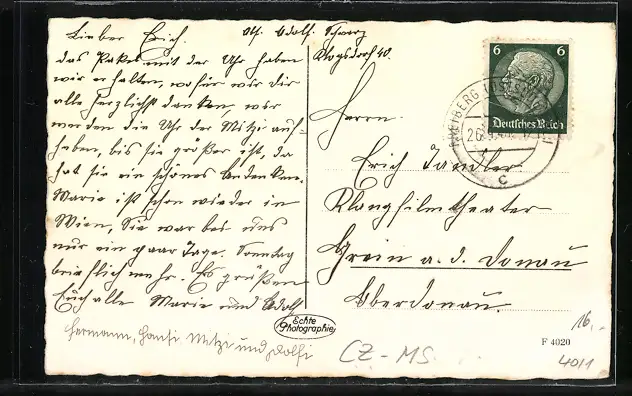 Lieber Erich.
das Paket mit der Uhr haben
wir erhalten, wofür wir dir
alle herzlichst danken, wir
werden die Uhr der Mitzi auf-
heben, bis sie größer ist, da
hat sie ein schönes Andenken.
Marie ist schon wieder in
Wien, Sie war bei uns
nur ein paar Tage. Sonntag
brieflich mehr. Es grüßen
Euch alle Marie und Adolf
Hermann, Hansi Mitzi und Dolfi
Abs. Adolf Schwarz
Klogsdorf 40.
6 6
Deutsches Reich
c
Herrn
Erich Jandler
Klangfilmtheater
Grein a. d. Donau
Oberdonau.
Echte
Photographie
CZ-MS
16.-
F 4020
40/1